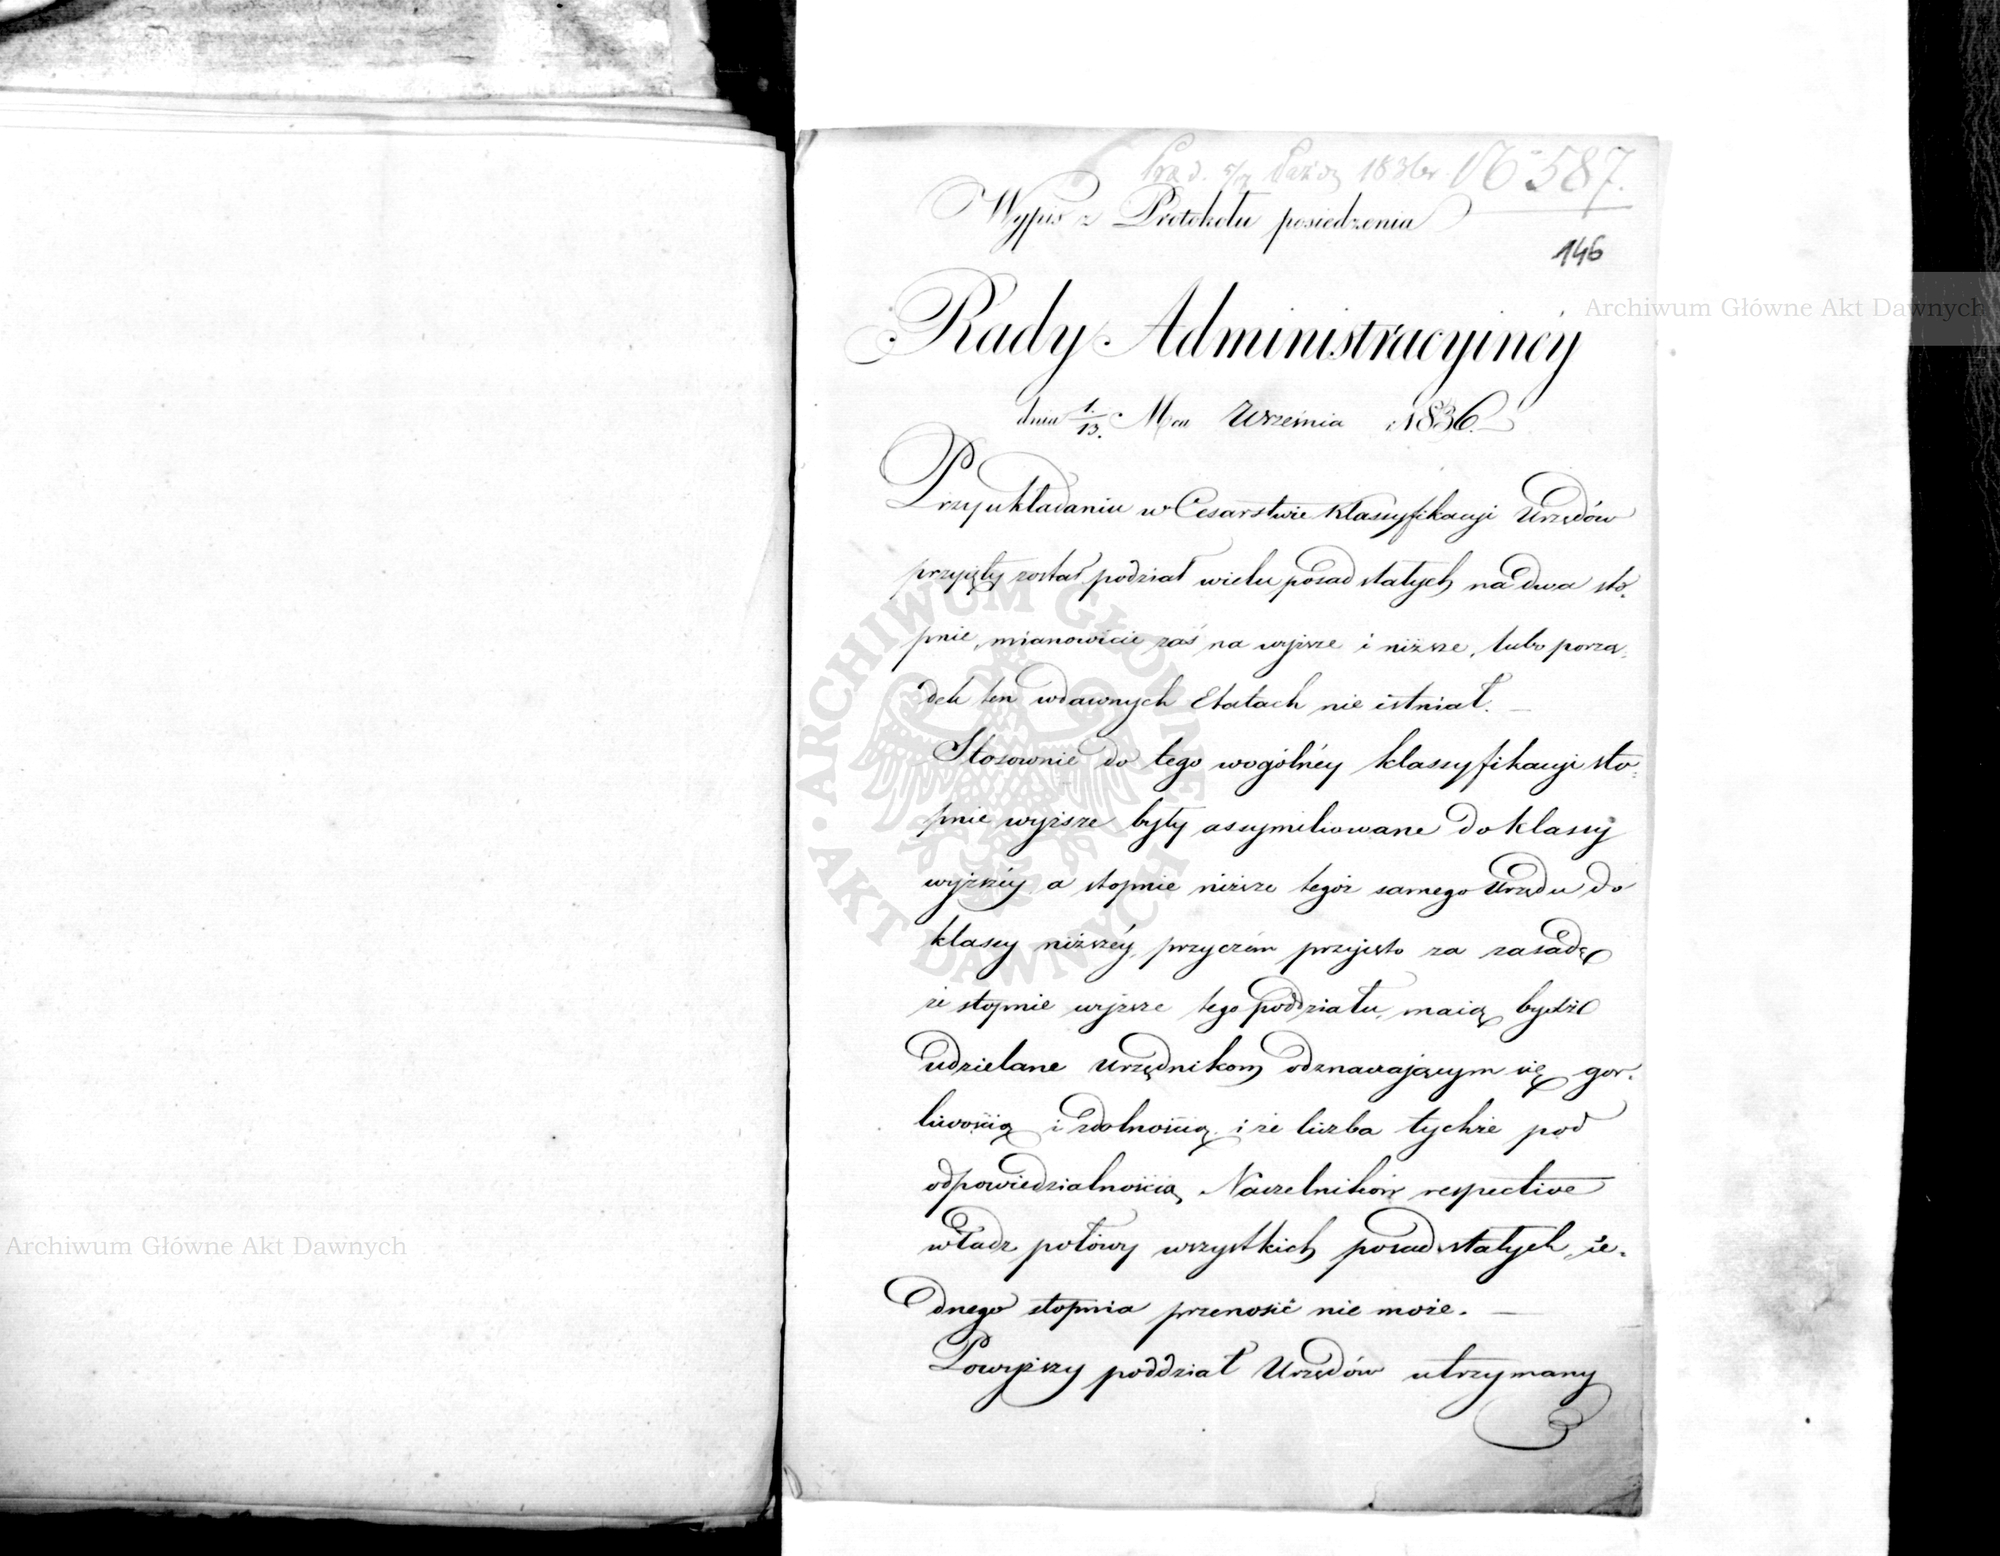 1836 r. No 587.
Wypis z Protokołu posiedzenia
146
Rady Administracyinéy
dnia 1./13. Mca Września 1836.
Przy układaniu w Cesarstwie klassyfikacyi Urzędów
przyięty został podział wielu posad stałych na dwa sto-
pnie, mianowicie zaś na wyższe i niższe, lubo porzą-
dek ten w dawnych Etatach nie istniał. —
Stosownie do tego w ogólnéy klassyfikacyi sto-
pnie wyższe były assymiliowane do klassy
wyższéy a stopnie niższe tegoż samego Urzędu do
klassy niższéy, przyczém przyjęto za zasadę
że stopnie wyższe tego poddziału, maią bydź
udzielane Urzędnikom odznaczającym się gor-
liwością i zdolnością i że liczba tychże pod
odpowiedzialnością Naczelników respective
władz połowy wszystkich posad stałych, ie-
dnego stopnia przenosić nie może. —
Powyższy poddział Urzędów utrzymany
Archiwum Główne Akt Dawnych
Archiwum Główne Akt Dawnych
ARCHIWUM GŁÓWNE · AKT DAWNYCH